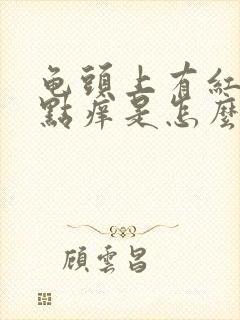 龟頭上有紅
點痒是怎麼
顧雲昌